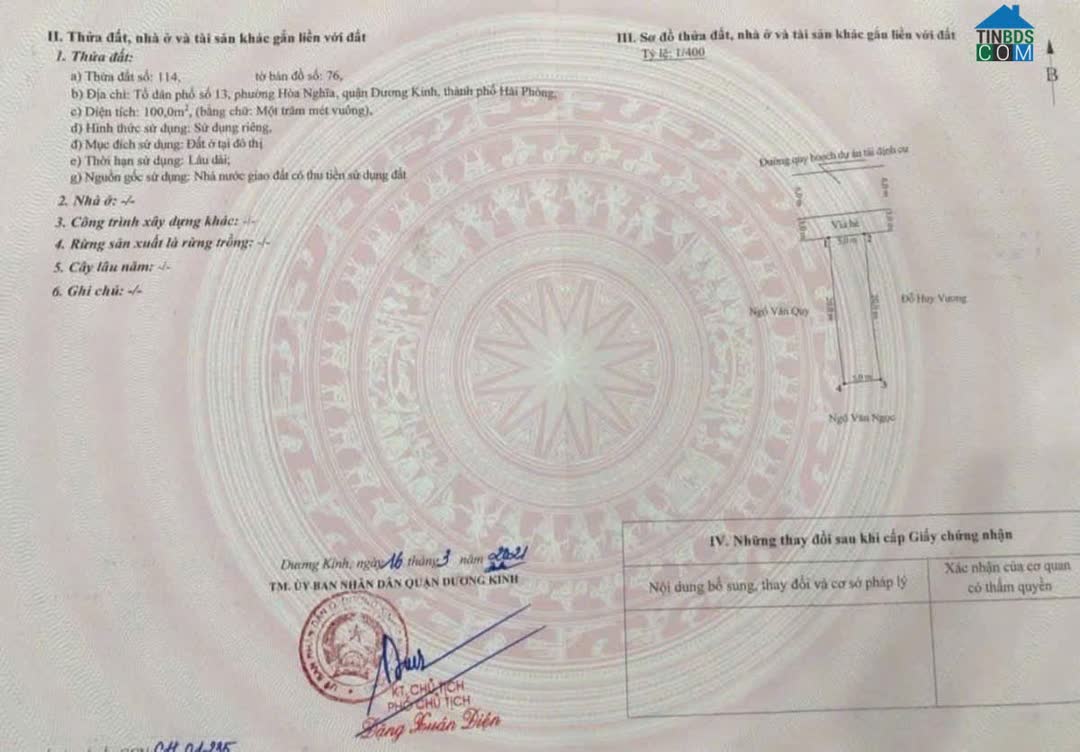 II. Thửa đất, nhà ở và tài sản khác gắn liền với đất
1. Thửa đất:
a) Thửa đất số: 114, tờ bản đồ số: 76,
b) Địa chỉ: Tổ dân phố số 13, phường Hòa Nghĩa, quận Dương Kinh, thành phố Hải Phòng,
c) Diện tích: 100,0m², (bằng chữ: Một trăm mét vuông),
d) Hình thức sử dụng: Sử dụng riêng,
đ) Mục đích sử dụng: Đất ở tại đô thị
e) Thời hạn sử dụng: Lâu dài;
g) Nguồn gốc sử dụng: Nhà nước giao đất có thu tiền sử dụng đất
2. Nhà ở: -/-
3. Công trình xây dựng khác: -/-
4. Rừng sản xuất là rừng trồng: -/-
5. Cây lâu năm: -/-
6. Ghi chú: -/-
III. Sơ đồ thửa đất, nhà ở và tài sản khác gắn liền với đất
Tỷ lệ: 1/400
TINBDS
COM
B
Đường quy hoạch dự án tái định cư
6,0 m 6,0 m
Vỉa hè
3,0 m 3,0 m
1 5,0 m 2
Ngô Văn Quy 20,0 m 20,0 m Đỗ Huy Vương
4 5,0 m 3
Ngô Văn Ngọc
Dương Kinh, ngày 16 tháng 3 năm 2021
TM. ỦY BAN NHÂN DÂN QUẬN DƯƠNG KINH
KT. CHỦ TỊCH
PHÓ CHỦ TỊCH
Đặng Xuân Điện
CH 01235
IV. Những thay đổi sau khi cấp Giấy chứng nhận
Nội dung bổ sung, thay đổi và cơ sở pháp lý
Xác nhận của cơ quan
có thẩm quyền